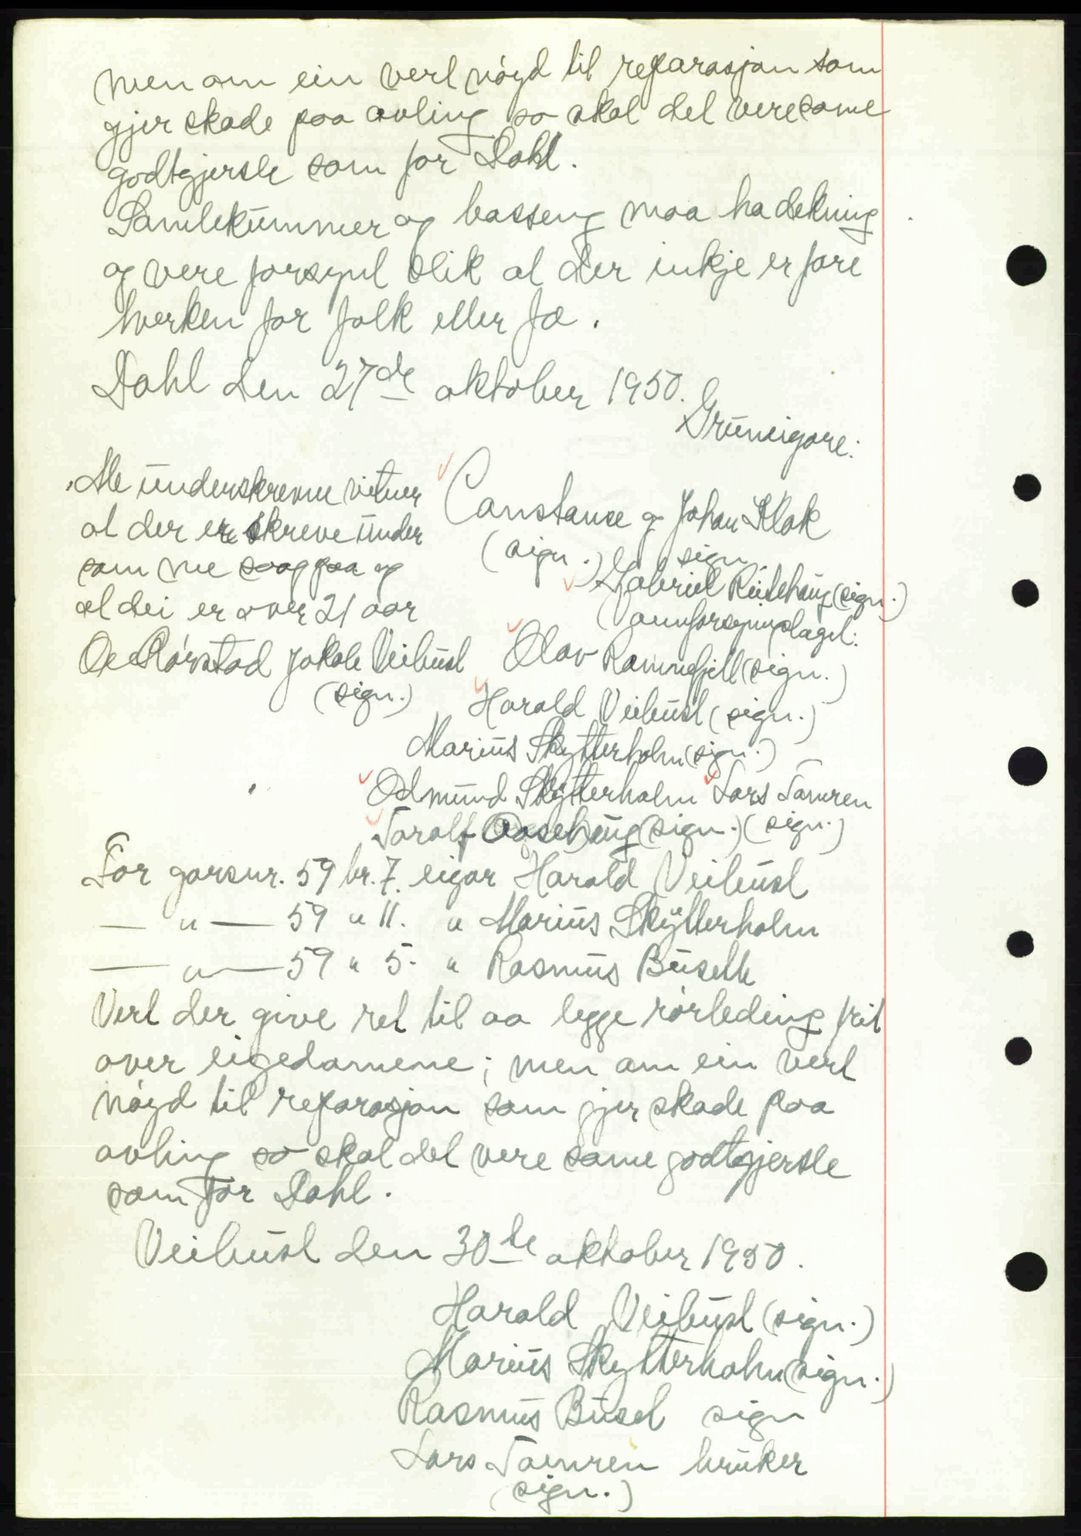 men om ein vert nøgd til reparasjon som
gjer skade paa avling so skal det vere same
godtgjersle som for Dahl.
Samlekummer og basseng maa ha dekning
og vere forsynt slik at der inkje er fare
hverken for folk eller fæ.
Dahl den 27de oktober 1950.
Gruneigare:
Me underskrevne vitner
at der er skreve under
som me saag paa og
at dei er over 21 aar
O. Rørstad Jakob Veibust
(sign.)
Constance og Johan Klok
(sign.) sign
Gabriel Ristehaug (sign.)
Vannforsyningslaget:
Olav Ramnefjell (sign.)
Harald Veibust (sign.)
Marius Skytterholm (sign.)
Odmund Skytterholm Lars Tamren
Toralf Aasehaug (sign.) (sign.)
For garsnr. 59 br. 7. eigar Harald Veibust
— " — 59 " 11. " Marius Skytterholm
— " — 59 " 5. " Rasmus Buseth
Vert der give ret til aa legge rørleding frit
over eigedomene; men om ein vert
nøgd til reparasjon som gjer skade paa
avling so skal det vere same godtgjersle
som for Dahl.
Veibust den 30te oktober 1950.
Harald Veibust (sign.)
Marius Skytterholm (sign.)
Rasmus Buset sign
Lars Tamren bruker
(sign.)